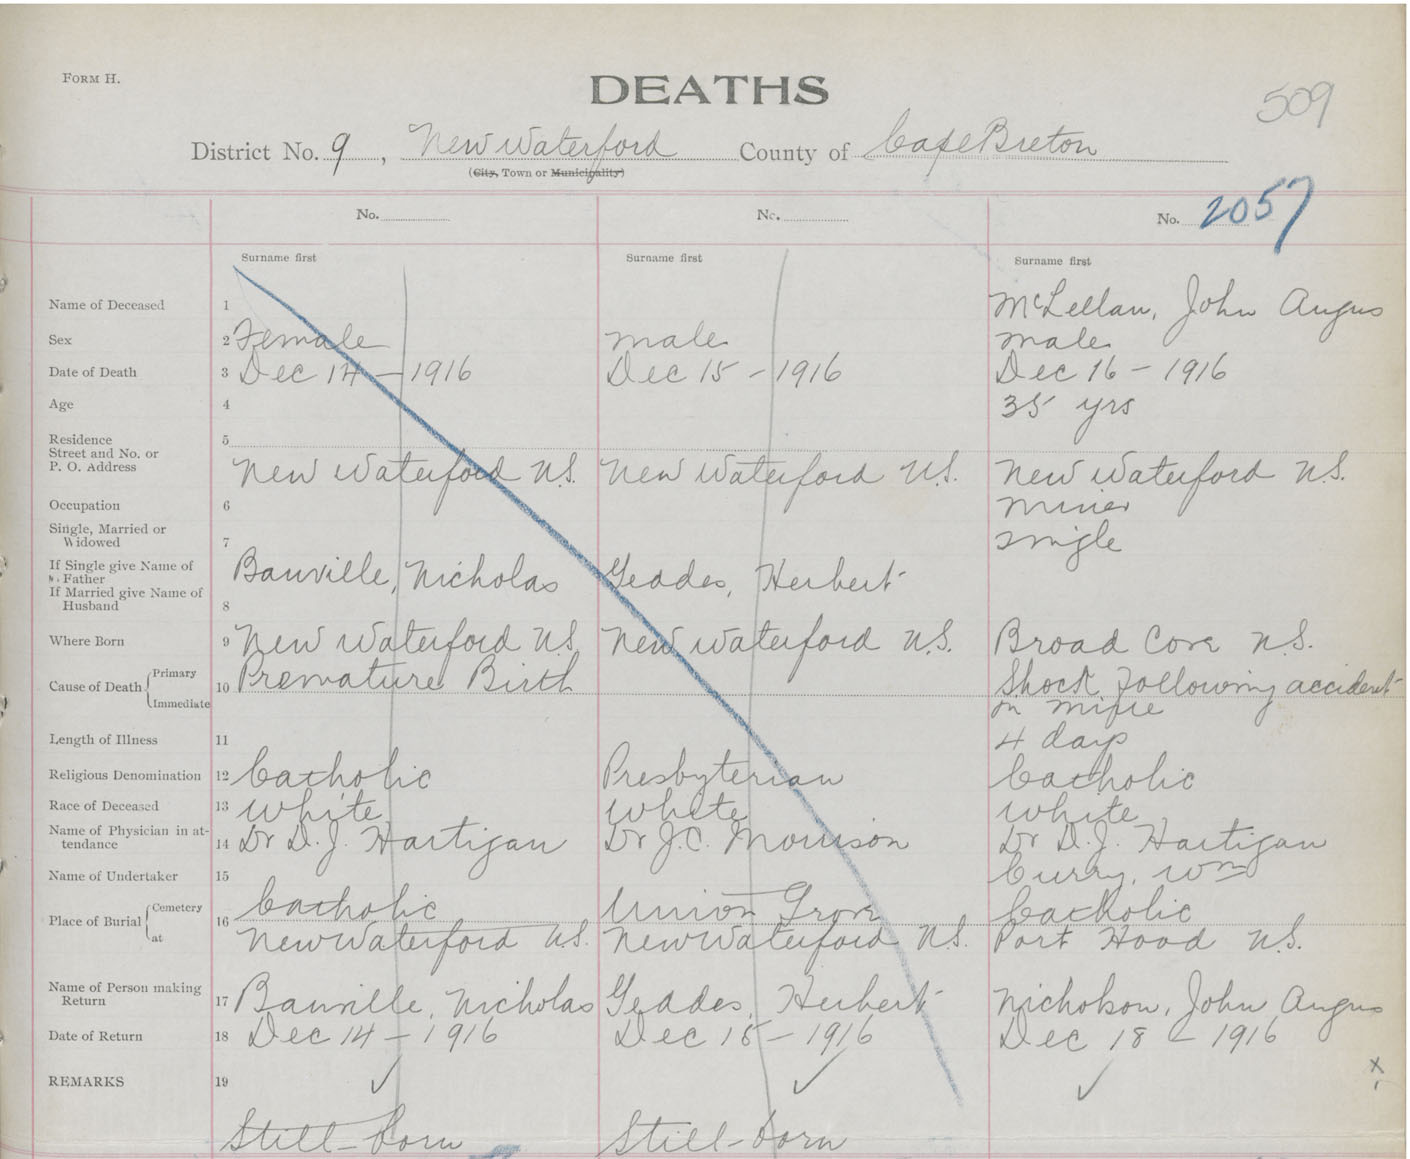 FORM H.
DEATHS
509
District No. 9, New Waterford County of Cape Breton
(City, Town or Municipality)
No. No. No. 2057
Surname first Surname first Surname first
Name of Deceased 1 McLellan, John Angus
Sex 2 Female male male
Date of Death 3 Dec 14 - 1916 Dec 15 - 1916 Dec 16 - 1916
Age 4 35 yrs
Residence 5
Street and No. or
P. O. Address New Waterford N.S. New Waterford N.S. New Waterford N.S.
Occupation 6 miner
Single, Married or
Widowed 7 single
If Single give Name of
Father Bauville, Nicholas Geddes, Herbert
If Married give Name of
Husband 8
Where Born 9 New Waterford N.S. New Waterford N.S. Broad Cove N.S.
Cause of Death Primary 10 Premature Birth Shock following accident
Immediate in mine
Length of Illness 11 4 days
Religious Denomination 12 Catholic Presbyterian Catholic
Race of Deceased 13 white white white
Name of Physician in at-
tendance 14 Dr D. J. Hartigan Dr J. C. Morrison Dr D. J. Hartigan
Name of Undertaker 15 Curry, Wm
Place of Burial Cemetery 16 Catholic Union Grove Catholic
at New Waterford N.S. New Waterford N.S. Port Hood N.S.
Name of Person making
Return 17 Bauville, Nicholas Geddes, Herbert Nicholson, John Angus
Date of Return 18 Dec 14 - 1916 Dec 15 - 1916 Dec 18 - 1916
REMARKS 19 ✓ ✓ ✓ x
Still-born Still-born